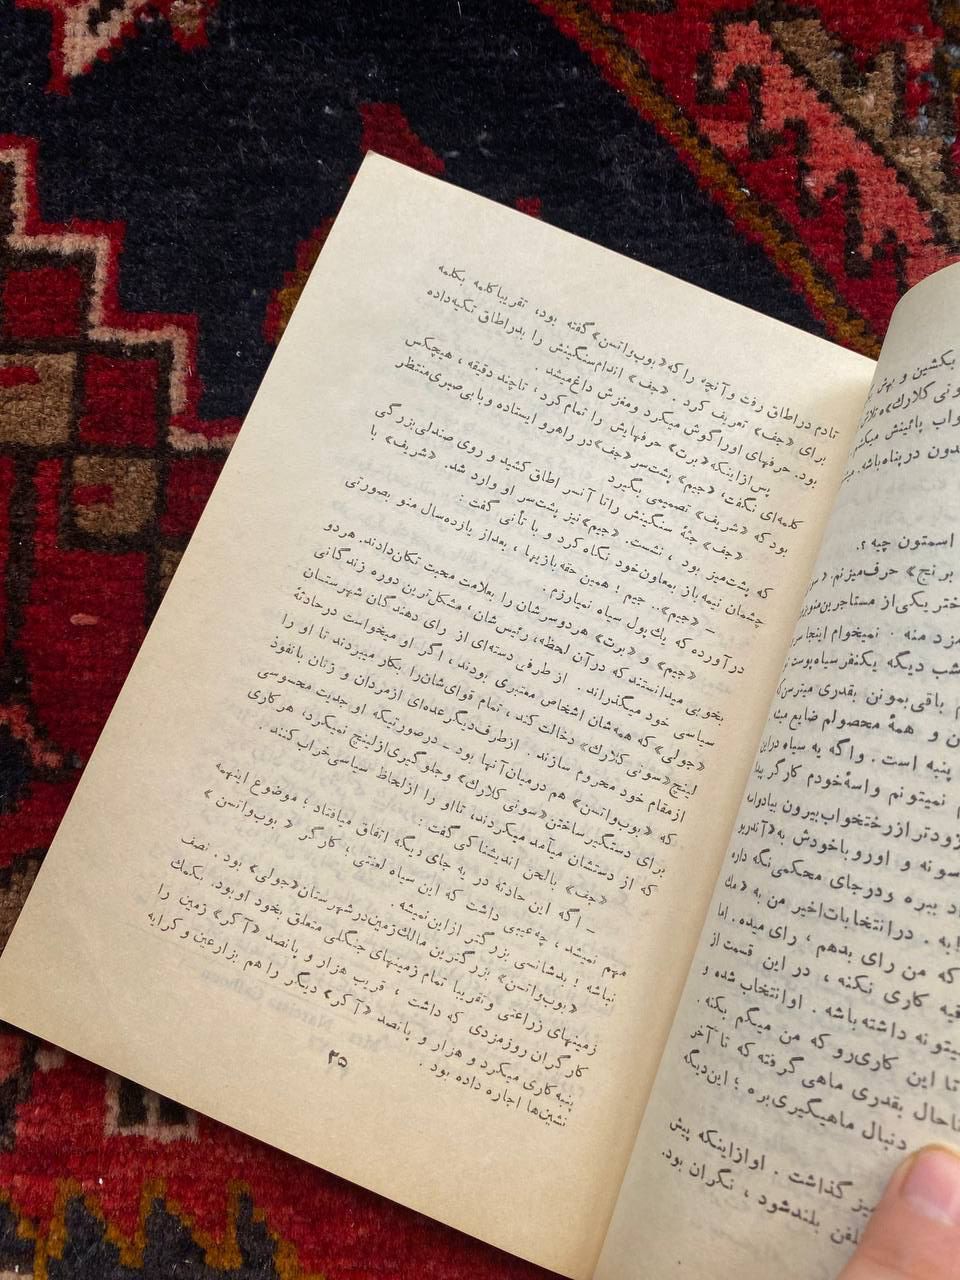 تادم دراطاق رفت و آنچه را که «بوب واتسن» گفته بود، تقریبا کلمه بکلمه
برای «جف» تعریف کرد. «جف» اندام سنگینش را بدراطاق تکیه‌داده
بود. حرفهای اورا گوش میکرد ومغزش داغ میشد.
پس ازاینکه «برت» حرفهایش را تمام کرد، تاچند دقیقه، هیچکس
کلمه‌ای نگفت، «جیم» پشت سر «جف» در راهرو ایستاده وبا بی صبری منتظر
بود که «شریف» تصمیمی بگیرد
«جف» جثهٔ سنگینش راتا آنسر اطاق کشید و روی صندلی بزرگی
که پشت میز بود، نشست. «جیم» نیز پشت سر او وارد شد. «شریف» با
چشمان نیمه باز بمعاون خود نگاه کرد و با تأنی گفت:
– «جیم».. جیم! همین حقه بازیها، بعداز یازده سال منو بصورتی
درآورده که یك پول سیاه نمیارزم.
«جیم» و «برت» هردوسرشان را بعلامت محبت تکان دادند. هردو
بخوبی میدانستند که درآن لحظه، رئیس شان، مشکل ترین دوره زندگانی
سیاسی خود میگذراند. ازطرفی دسته‌ای از رای دهندگان شهرستان
«جولی» که همه شان اشخاص معتبری بودند، اگر او میخواست درحادثهٔ
لینچ «سونی کلارك» دخالت کند، تمام قوای شان را بکار میبردند تا او را
ازمقام خود محروم سازند. ازطرف دیگر عده‌ای ازمردان و زنان بانفوذ
که «بوب واتسن» هم درمیان آنها بود - درصورتیکه او جدیت محسوسی
برای دستگیر ساختن «سونی کلارك» وجلوگیری ازلینچ نمیکرد، هرکاری
که از دستشان میآمد میکردند، تااو را ازلحاظ سیاسی خراب کنند.
«جف» بالحن اندیشناکی گفت:
– اگه این حادثه در یه جای دیگه اتفاق میافتاد؛ موضوع اینهمه
مهم نمیشد، چه عیبی داشت که این سیاه لعنتی؛ کارگر «بوب واتسن»
نباشه! بدشانسی بزرگتر ازاین نمیشه.
«بوب واتسن» بزرگترین مالك زمین در شهرستان «جولی» بود. نصف
زمینهای زراعتی وتقریبا تمام زمینهای جنگلی متعلق بخود اوبود. بکمك
کارگران روزمزدی که داشت، قریب هزار و پانصد «آکر» زمین را
پنبه کاری میکرد و هزار و پانصد «آکر» دیگر را هم بزارعین و کرایه
نشین‌ها اجاره داده بود.
۲۵
بکشین و بهش
ونی کلارك»
واب پائینش میکنم
دون درپناه باشه.
اسمتون چیه؟.
برنج» حرف میزنم.
ختر یکی از مستاجرین
مزد منه. نمیخوام اینجا
شب دیگه یکنفر سیاه پوست
باقی بمونن بقدری میترسن
و همهٔ محصولم ضایع
پنبه است. واگه یه سیاه دراین
نمیتونم واسهٔ خودم کارگر
زودتر ازرختخواب بیرون بیا
سونه و اورو باخودش به
ببره ودرجای محکمی نگه داره
به. درانتخابات اخیر من به
که من رای بدهم، رای میده. اما
کاری نکنه، در این قسمت از
داشته باشه. اوانتخاب شده و
تا این کاری‌رو که من میگم بکنه.
تاحال بقدری ماهی گرفته که تا آخر
دنبال ماهیگیری بره؛ این دیگه
گذاشت. اوازاینکه پیش
بلندشود، نگران بود.